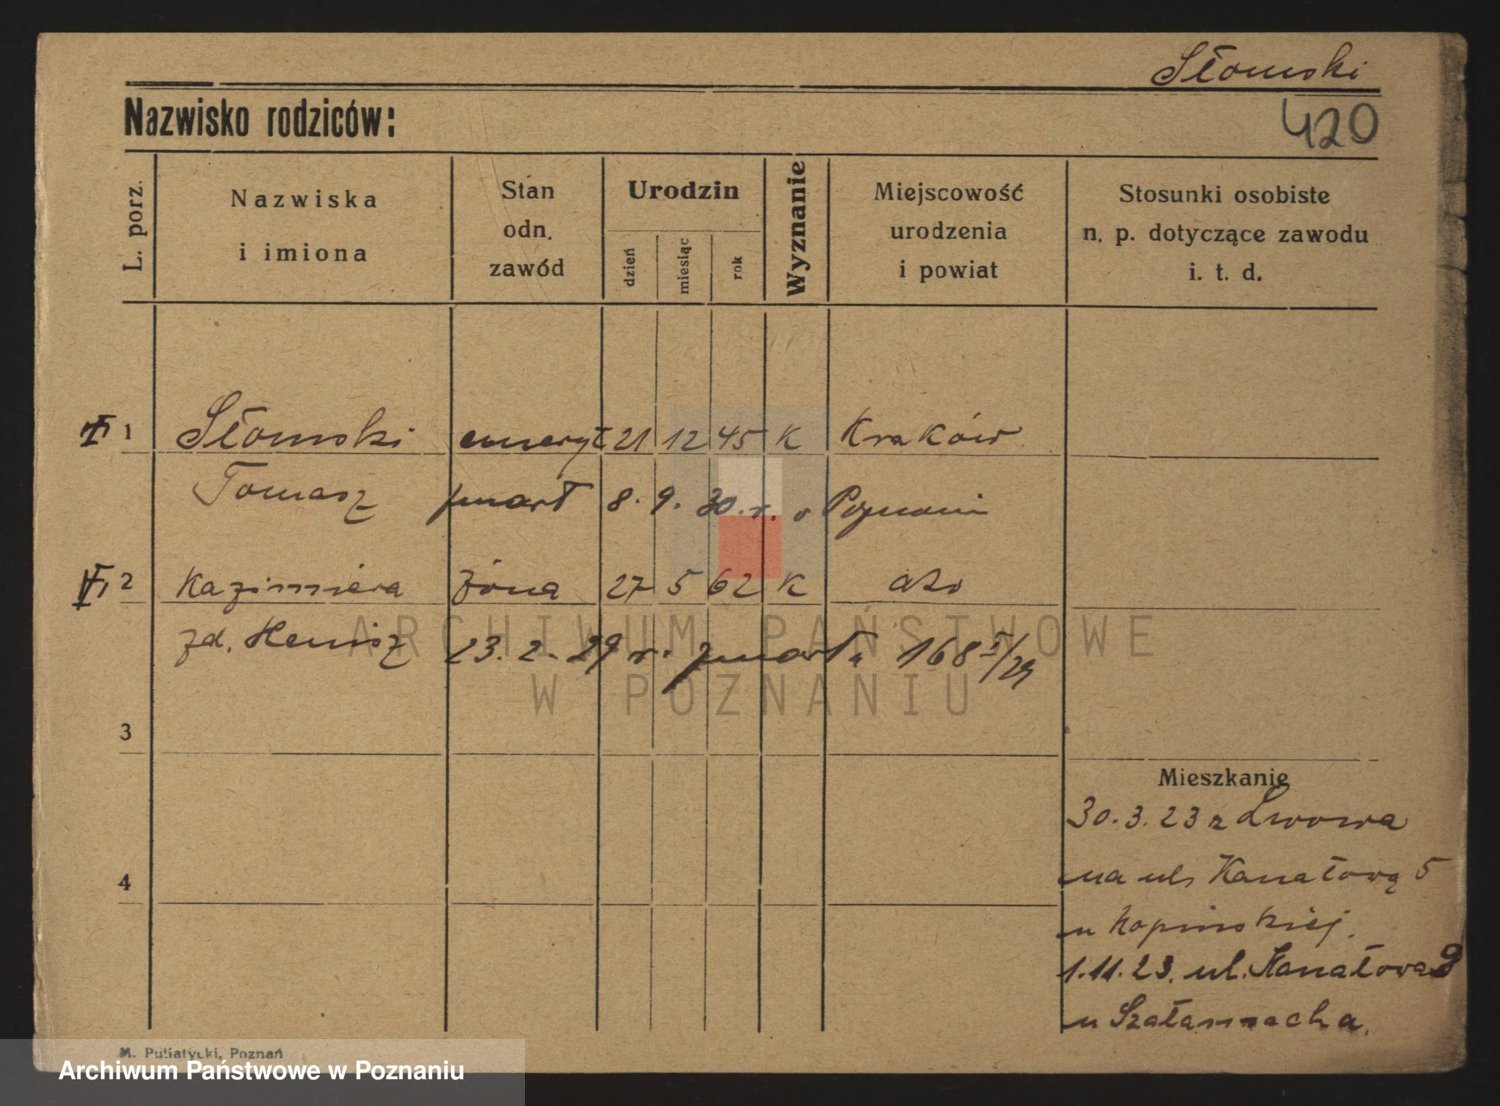 Słomski
Nazwisko rodziców:
420
L. porz.
Nazwiska
i imiona
Stan
odn.
zawód
Urodzin
dzień
miesiąc
rok
Wyznanie
Miejscowość
urodzenia
i powiat
Stosunki osobiste
n. p. dotyczące zawodu
i. t. d.
1 Słomski emeryt 21 12 45 K Kraków
Tomasz zmarł 8. 9. 30. r. Poznaniu
2 Kazimiera żona 27 5 62 K dto
zd. Henisz 23. 2. 29 r. zmarła 168 I/29
3
4
Mieszkanie
30. 3. 23 z Lwowa
na ul. Kanałową 5
u Kopinskiej.
1. 11. 23. ul. Kanałowa 9
u Szałamacha.
M. Putiatycki, Poznań
ARCHIWUM PAŃSTWOWE
W POZNANIU
Archiwum Państwowe w Poznaniu